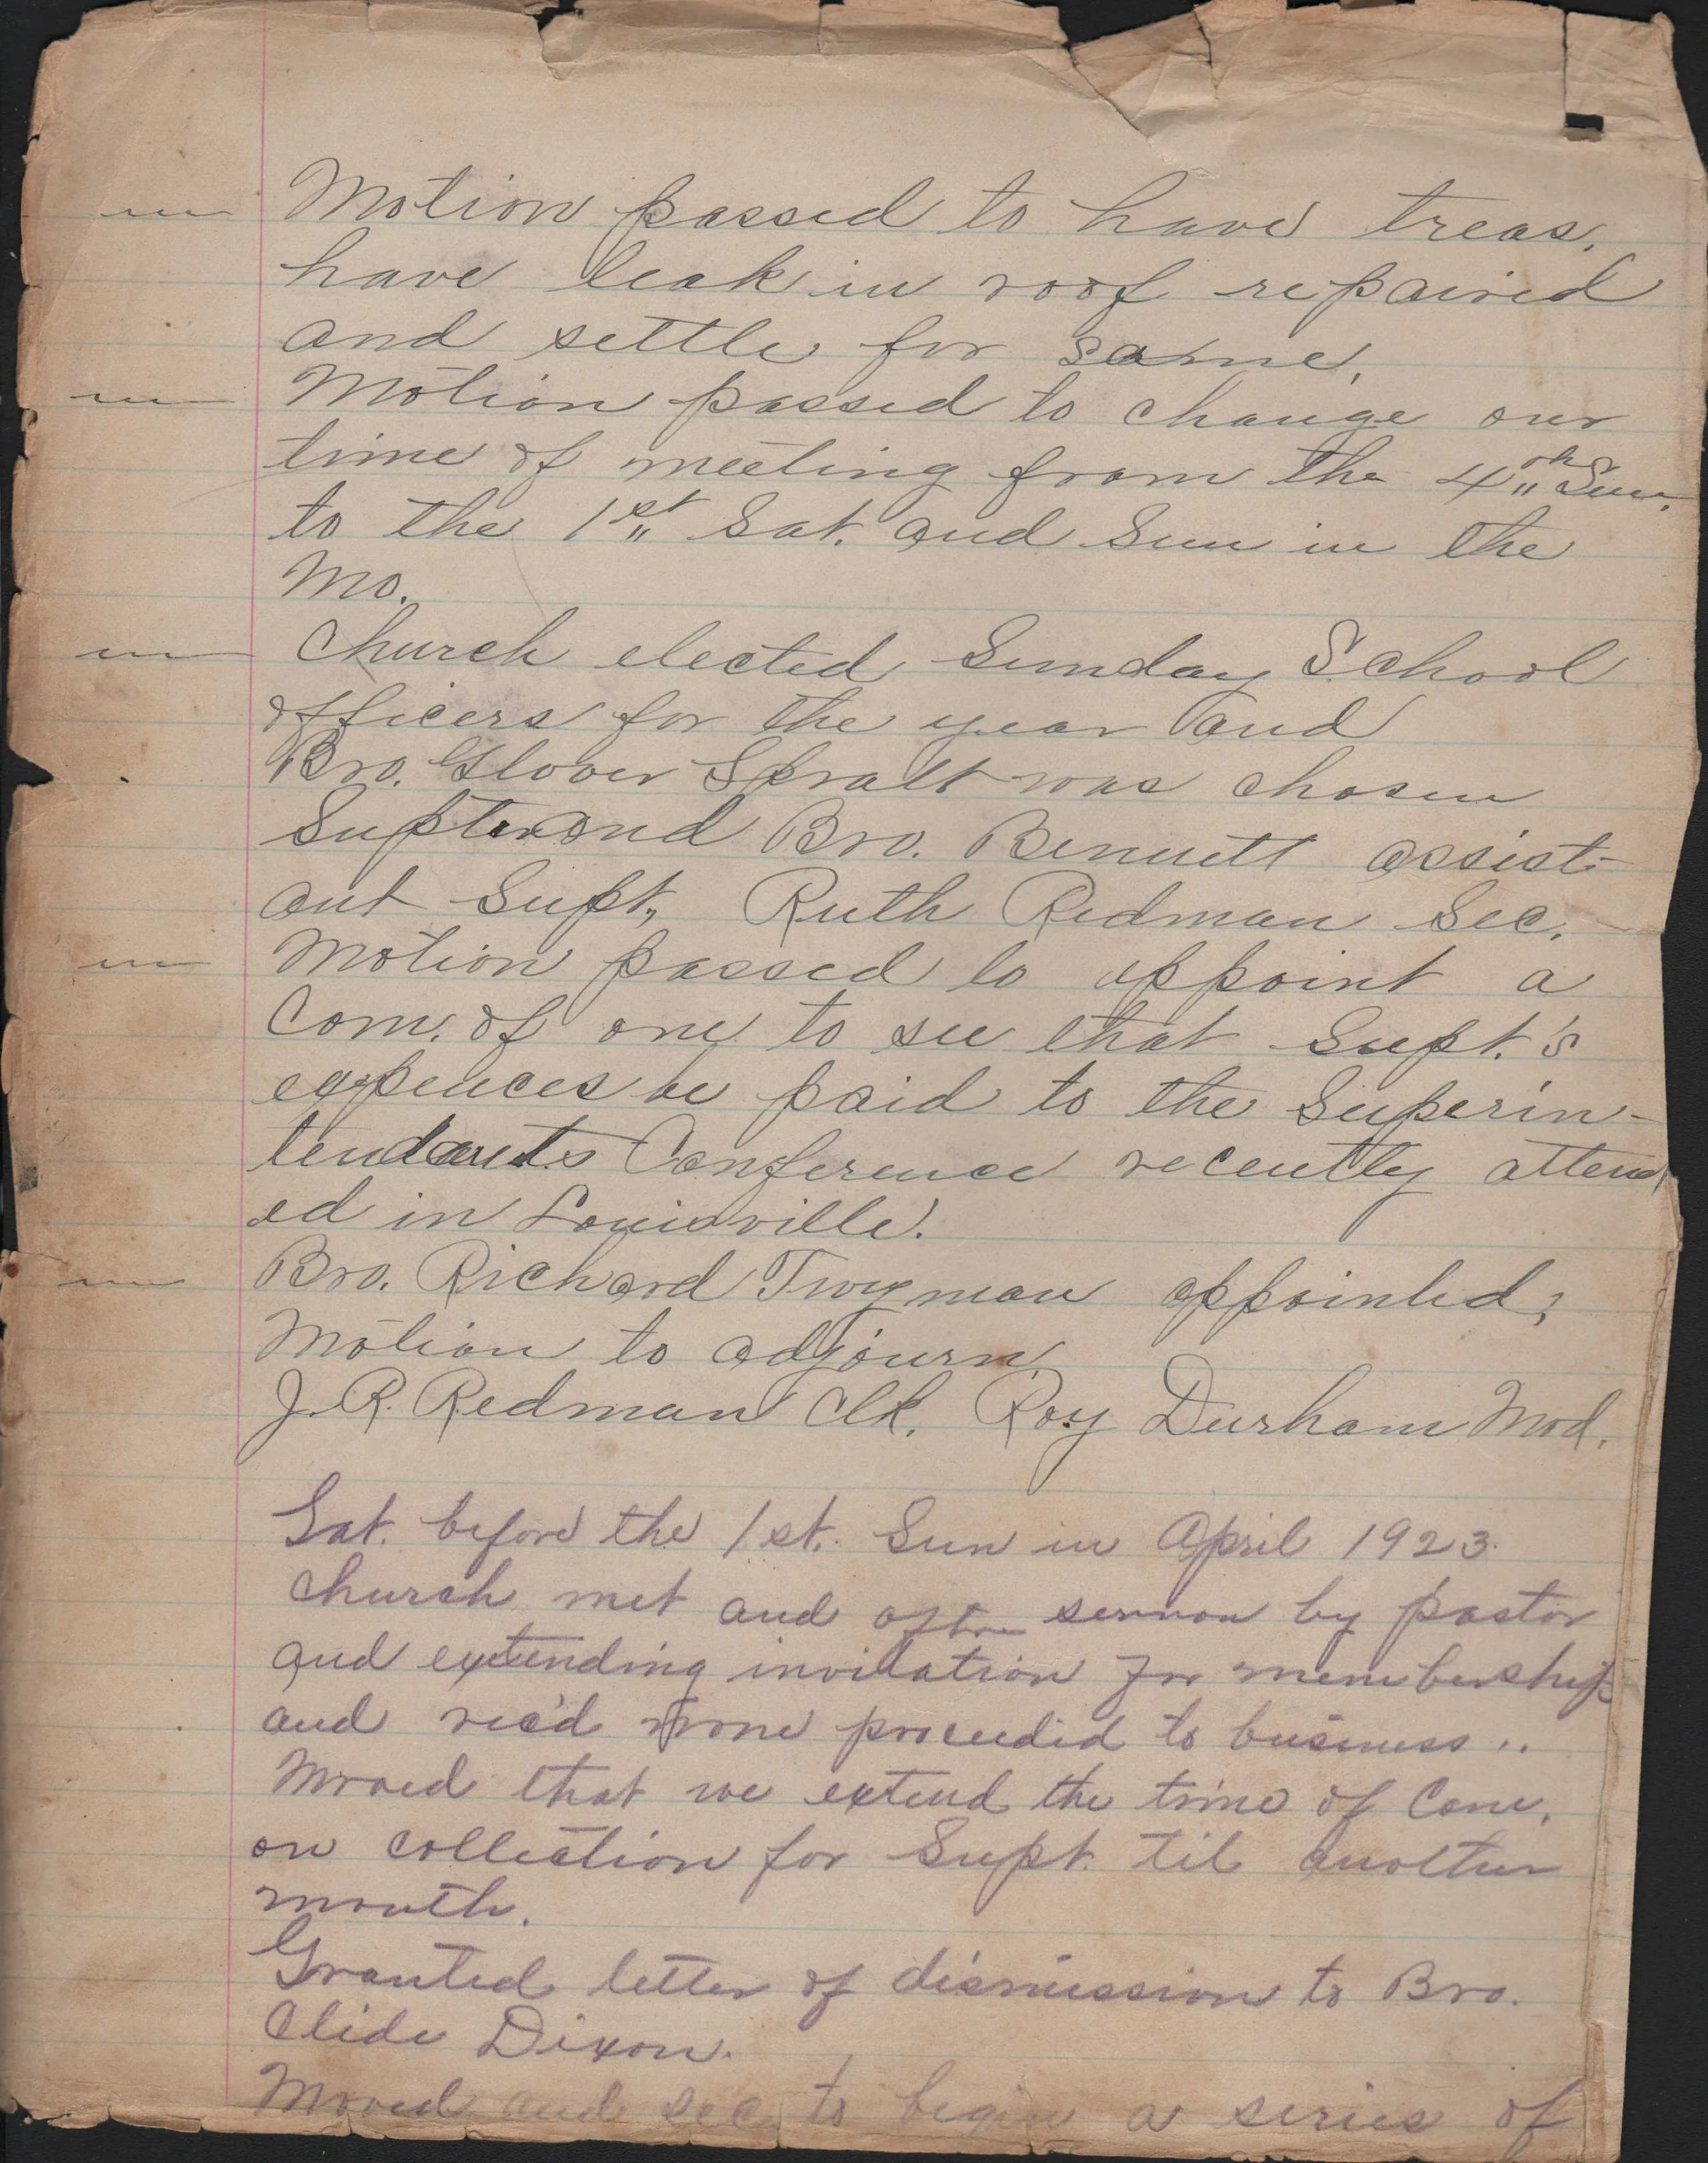 Motion passed to have treas.
have leak in roof repaired
and settle for same.
Motion passed to change our
time of meeting from the 4th Sun.
to the 1st Sat. and Sun in the
Mo.
Church elected Sunday School
officers for the year and
Bro. Glover Spratt was chosen
Supt. and Bro. Bennett assist-
ant Supt., Ruth Redman Sec.
Motion passed to appoint a
Com. of one to see that Supt.'s
expences be paid to the Superin-
tendants Conference recently attend
ed in Louisville.
Bro. Richard Twyman appointed,
Motion to adjourn
J. R. Redman Clk. Roy Durham Mod.
Sat. before the 1st. Sun in April 1923.
Church met and after sermon by pastor
and extending invitation for membership
and rec'd none proceeded to business..
Moved that we extend the time of Com.
on collection for Supt. til another
month.
Granted letter of dismission to Bro.
Clide Dixon.
Moved and sec. to begin a series of